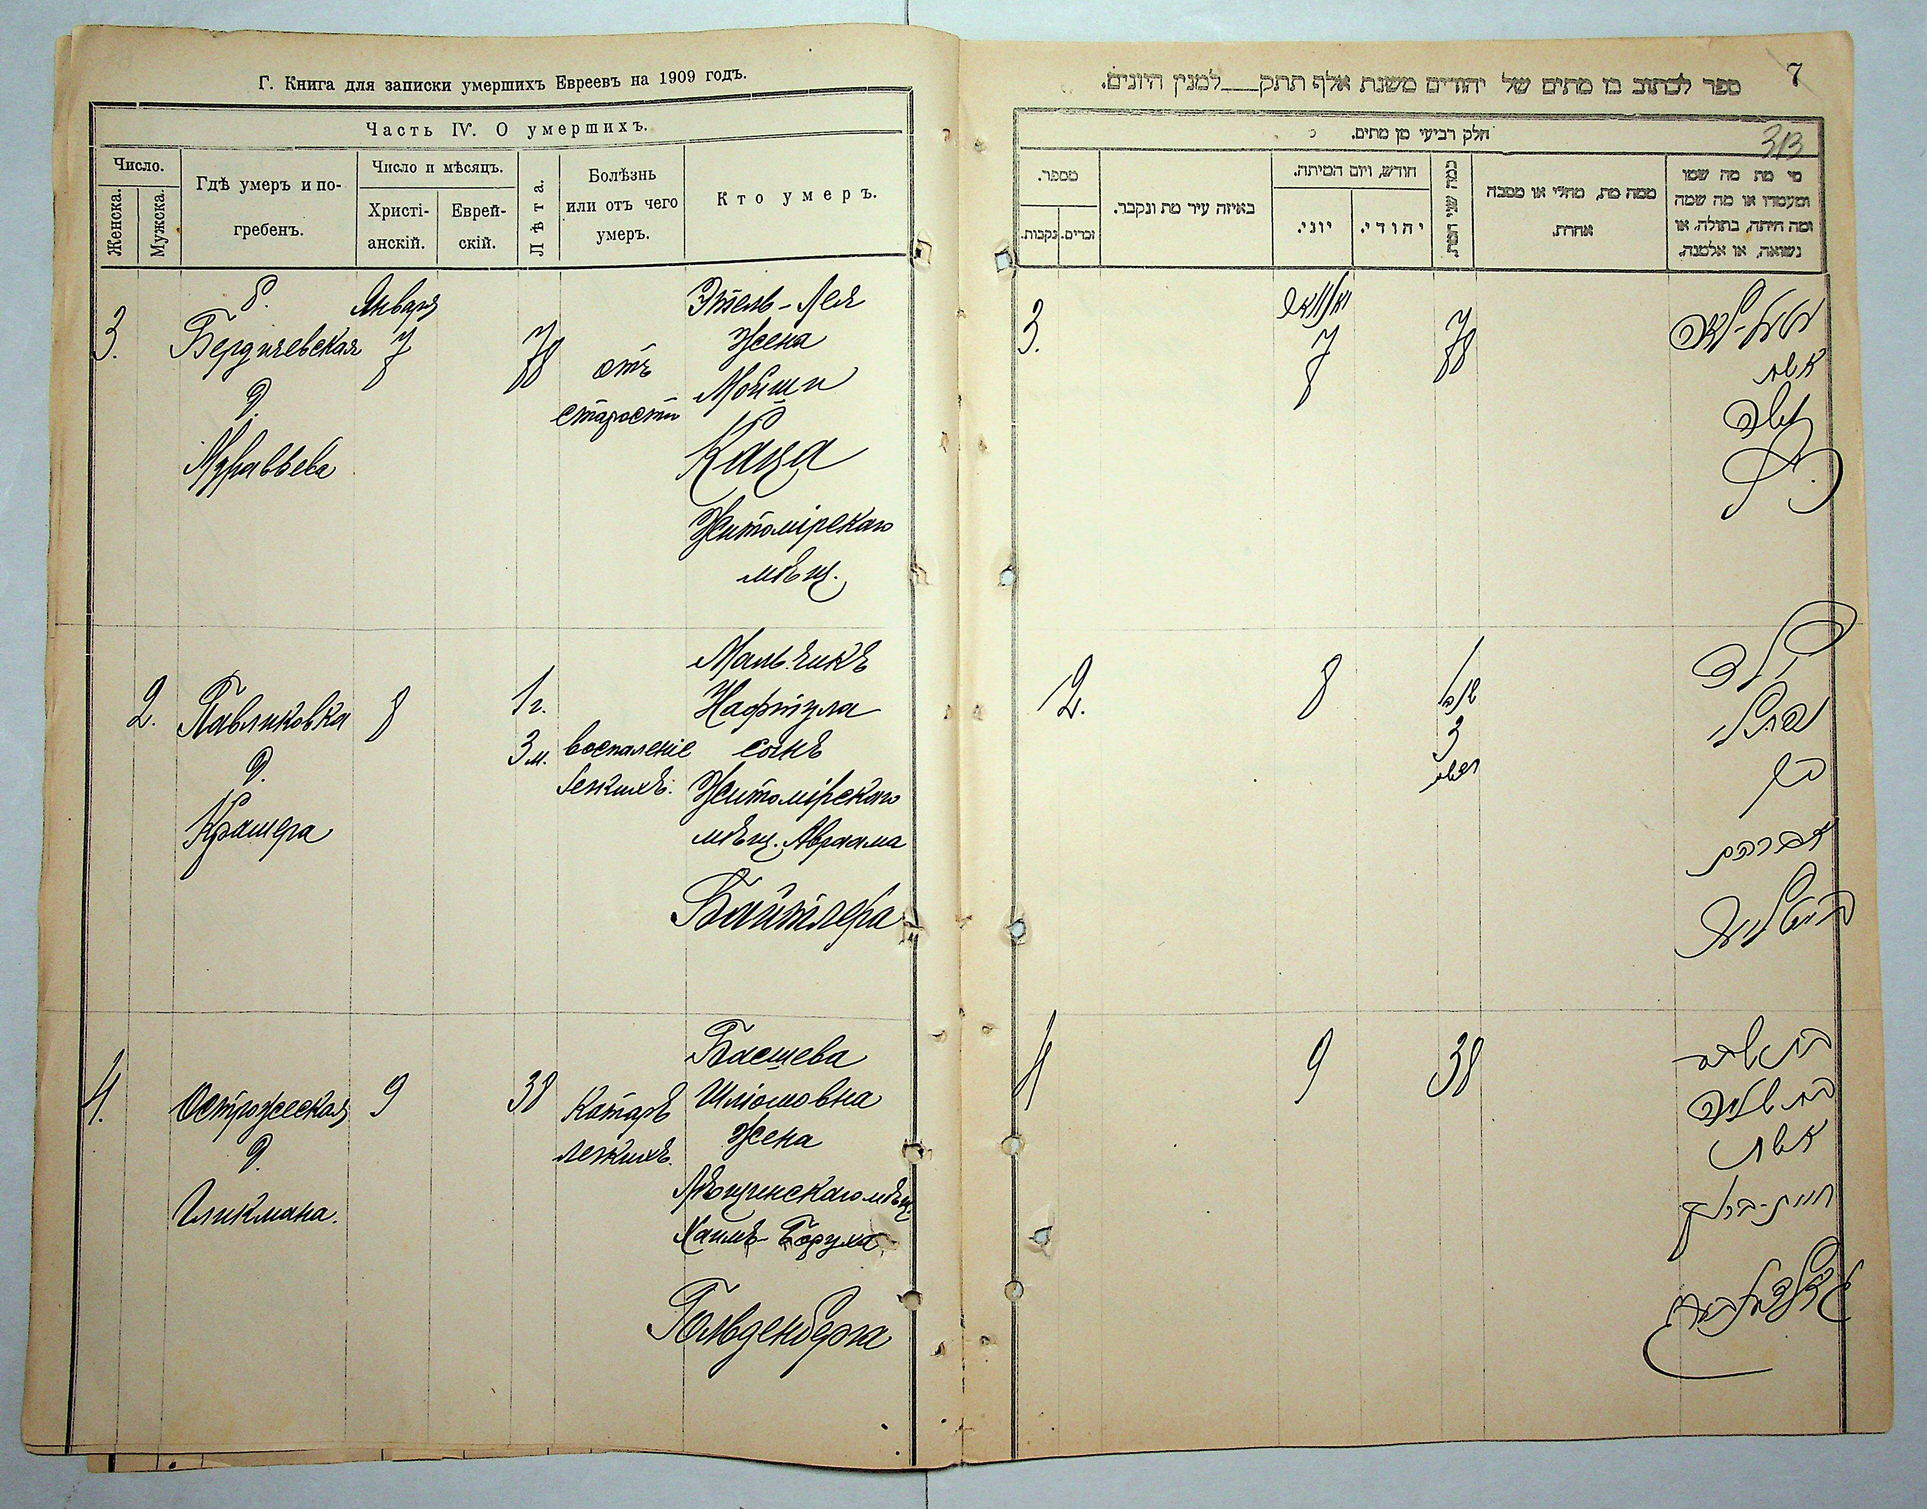 Г. Книга для записки умершихъ Евреевъ на 1909 годъ.
Часть IV. О умершихъ.
Число.
Женска.
Мужска.
Гдѣ умеръ и по-
гребенъ.
Число и мѣсяцъ.
Христі-
анскій.
Еврей-
скій.
Лѣта.
Болѣзнь
или отъ чего
умеръ.
Кто умеръ.
3.
б.
Бердичевская
д.
Муравьева
Января
7
78
отъ
старости
Этель-Лея
жена
Мойши
Каца
Житомірскаго
мѣщ.
2.
Павликовка
д.
Крамера
8
1 г.
3 м.
воспаленіе
легкихъ.
Мальчикъ
Нафтула
сынъ
Житомірскаго
мѣщ. Авраама
Байтлера
4.
Острожская
д.
Гликмана.
9
38
Катаръ
легкихъ.
Басшева
Шліомовна
жена
мѣщ.
Хаимъ-Боруха
Гольденберга
7
ספר לכתוב בו מתים של יהודים משנת אלף תתק___למנין היונים.
313
חלק רביעי מן מתים.
מספר.
נקבות.
זכרים.
באיזה עיר מת ונקבר.
חודש, ויום המיתה.
יוני.
יהודי.
כמה שני המת
ממה מת, מחלי או מסבה
אחרת.
מי מת מה שמו
ומעמדו או מה שמה
ומה היתה, בתולה, או
נשואה, או אלמנה.
3.
יאנוואר
7
78
עטעל-לאה
אשת
משה
כץ
2.
8
1
שנה
3
חדשים
הילד
נפתלי
בן
אברהם
בייטלער
4
9
38
בת שבע
בת שלמה
אשת
חיים-ברוך
גאלדענבערג